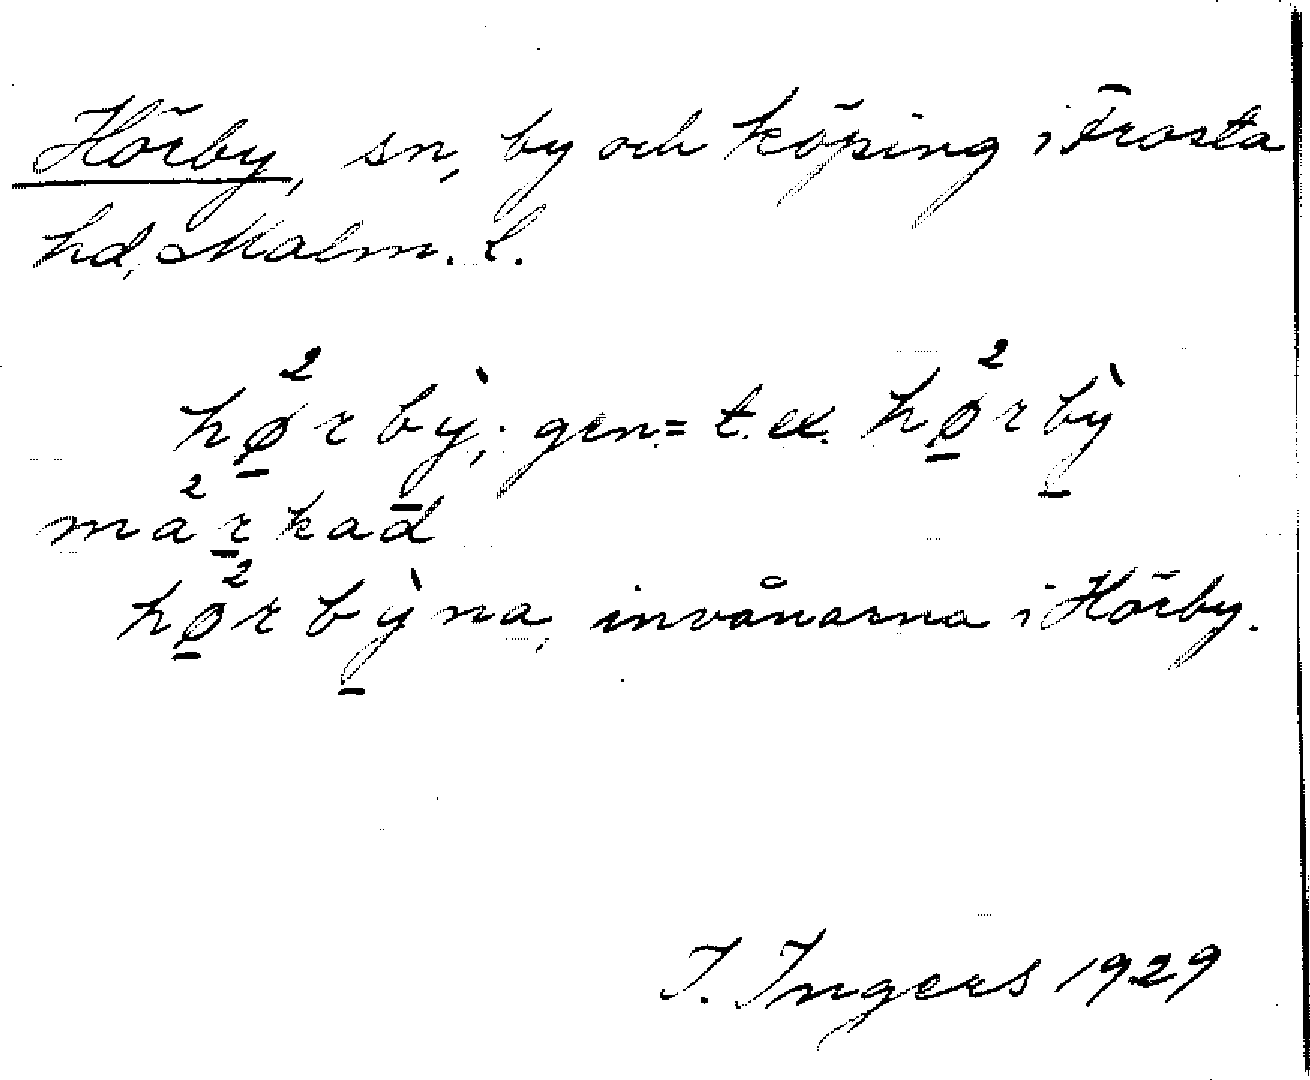 Hörby, sn, by och köping i Frosta
hd, Malm. l.
hø̱²rbỳ̱; gen.= t.ex. hø̱²rbỳ̱
ma²ṟkad
hø̱²rbỳ̱na, invånarna i Hörby.
I. Ingers 1929